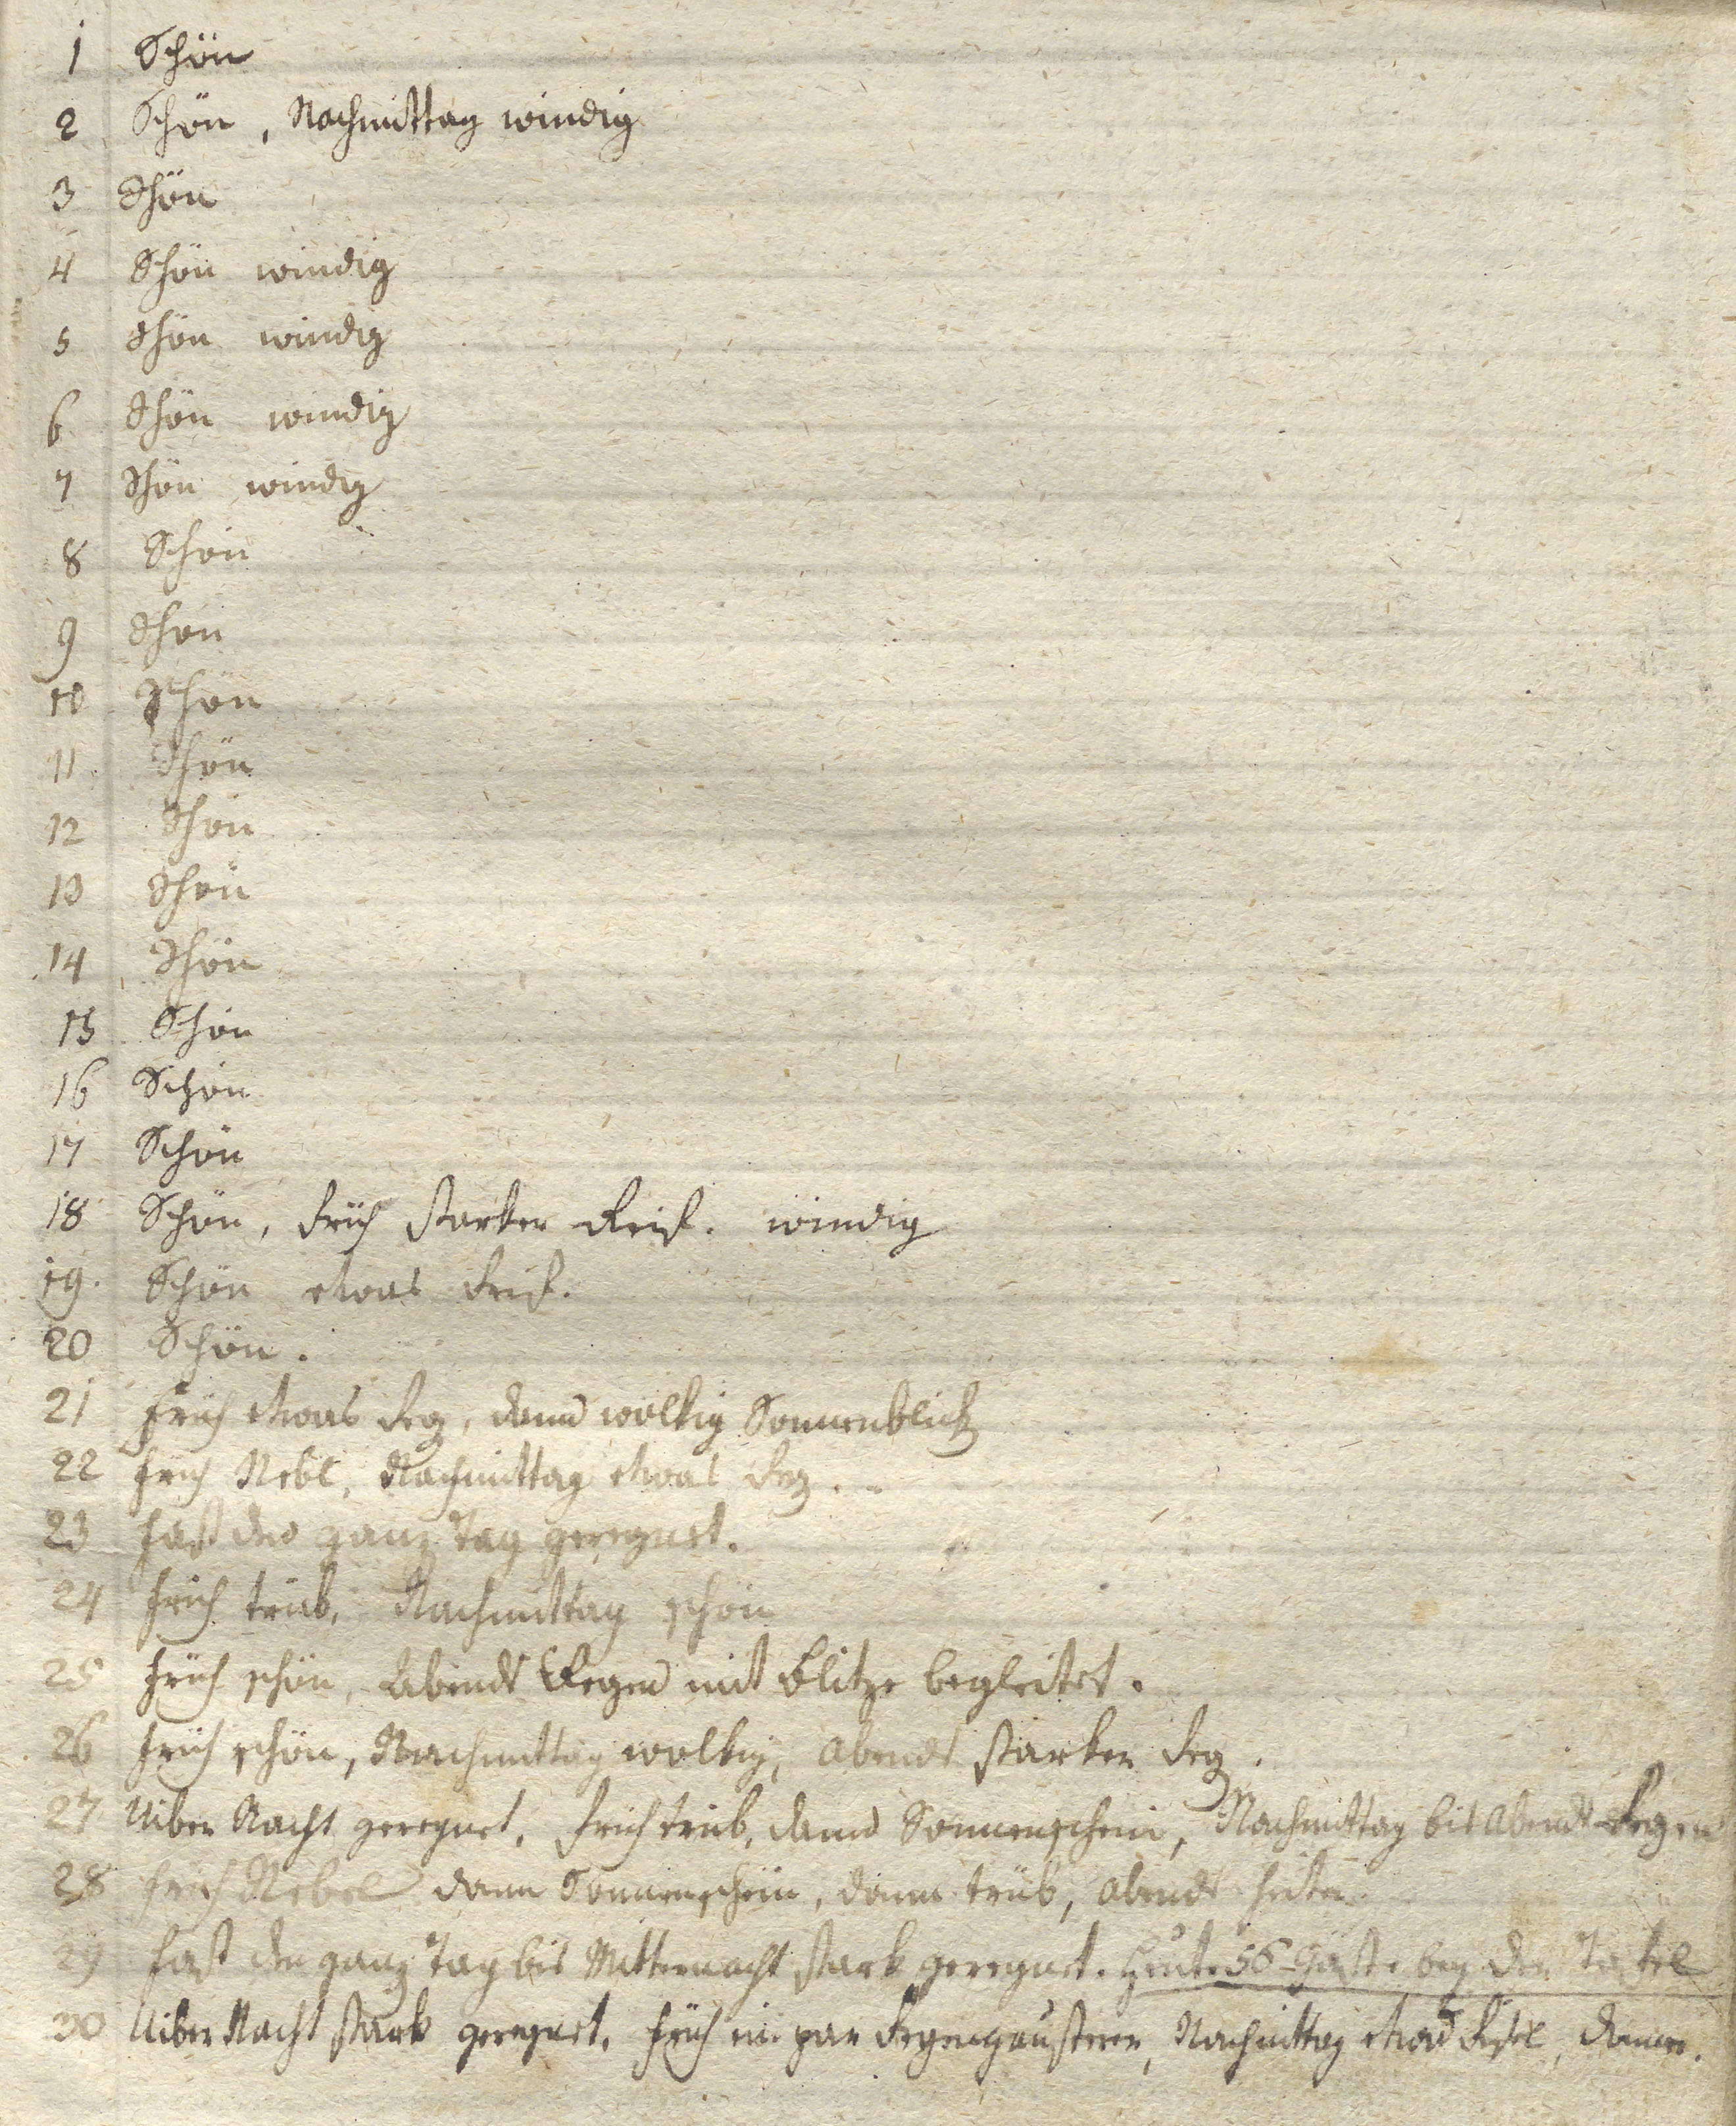 1 Schön
2 Schön, Nachmittag windig
3 Schön
4 Schön windig
5 Schön windig
6 Schön windig
7 Schön windig
8 Schön
9 Schön
10 Schön
11 Schön
12 Schön
13 Schön
14 Schön
15 Schön
16 Schön
17 Schön
18 Schön, früh starker Reif. windig
19. Schön etwas Reif.
20 Schön.
21 früh etwas Reg, dann wolkig Sonnenblick
22 früh Nebl, Nachmittag etwas Reg.
23 fast den ganz Tag geregnet.
24 früh trüb, Nachmittag schön
25 früh schön, Abends Regen mit Blitze begleitet.
26 früh schön, Nachmittag wolkig, abends starker Reg.
27 Uiber Nacht geregnet, früh trüb, dann Sonnenschein, Nachmittag bis Abends Regen
28 früh Nebel dann Sonnenschein, dann trüb, abends heiter
29 fast den ganz Tag bis Mitternacht stark geregnet. Heute 56 Gäste bey der Tafel
30 Uiber Nacht stark geregnet, früh ein par Nachmittag etwas